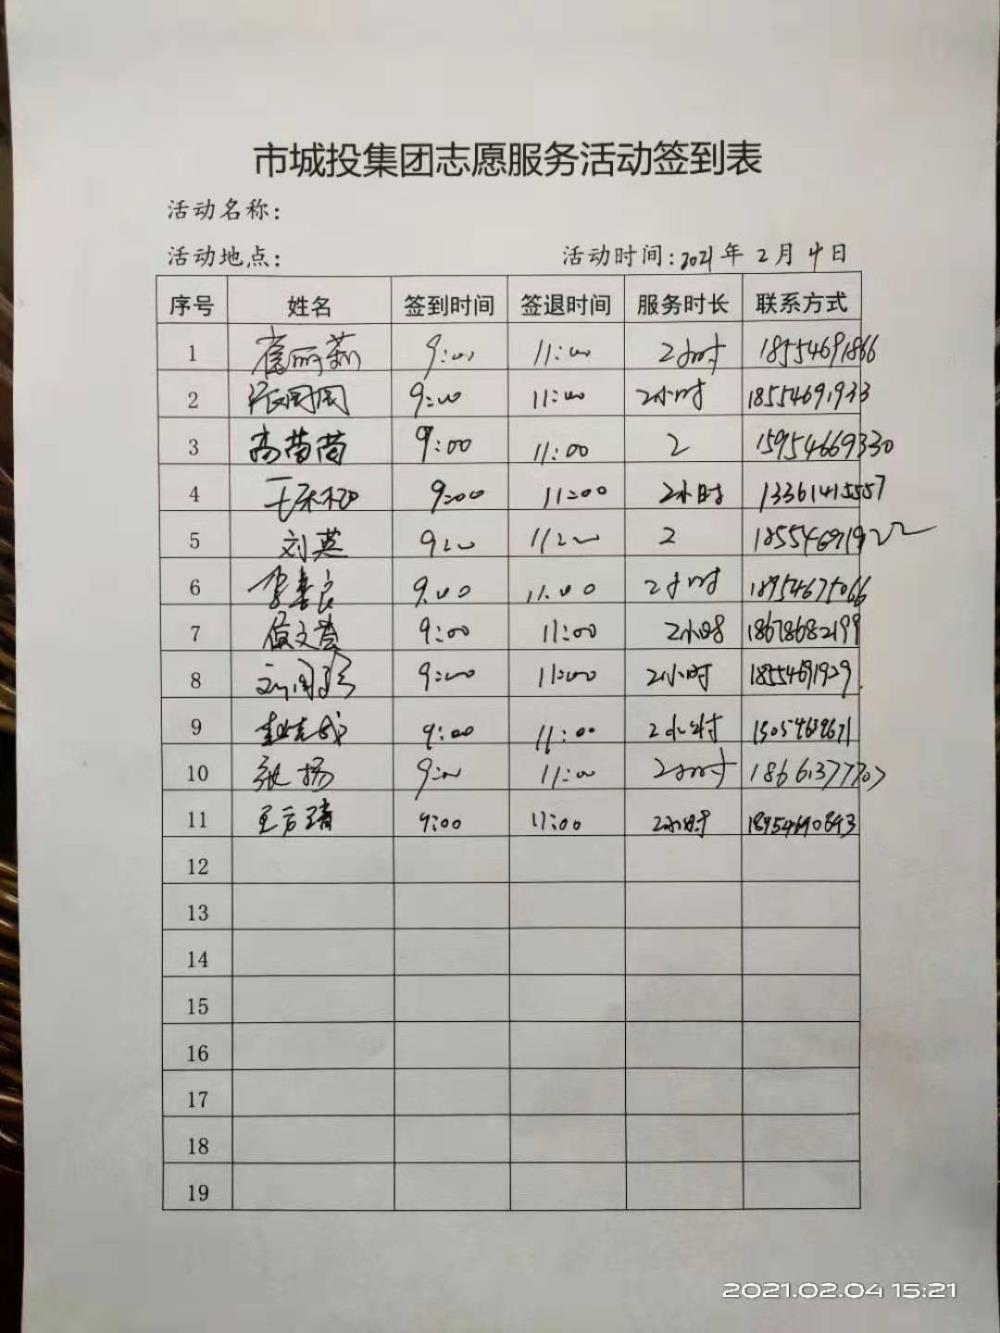 市城投集团志愿服务活动签到表
活动名称:
活动地点: 活动时间:2021年 2月 4日
序号 姓名 签到时间 签退时间 服务时长 联系方式
1 崔丽莉 9:00 11:00 2小时 18554691866
2 张周周 9:00 11:00 2小时 18554691933
3 高苗苗 9:00 11:00 2 15954669330
4 9:00 11:00 2小时 13361415557
5 刘英 9:00 11:00 2 18554691922
6 李春良 9:00 11:00 2小时 18954675066
7 侯文营 9:00 11:00 2小时 18678682199
8 9:00 11:00 2小时 18554691929
9 9:00 11:00 2小时 15054639671
10 张扬 9:00 11:00 2小时 18661377707
11 王方靖 9:00 11:00 2小时 18954690843
12
13
14
15
16
17
18
19
2021.02.04 15:21